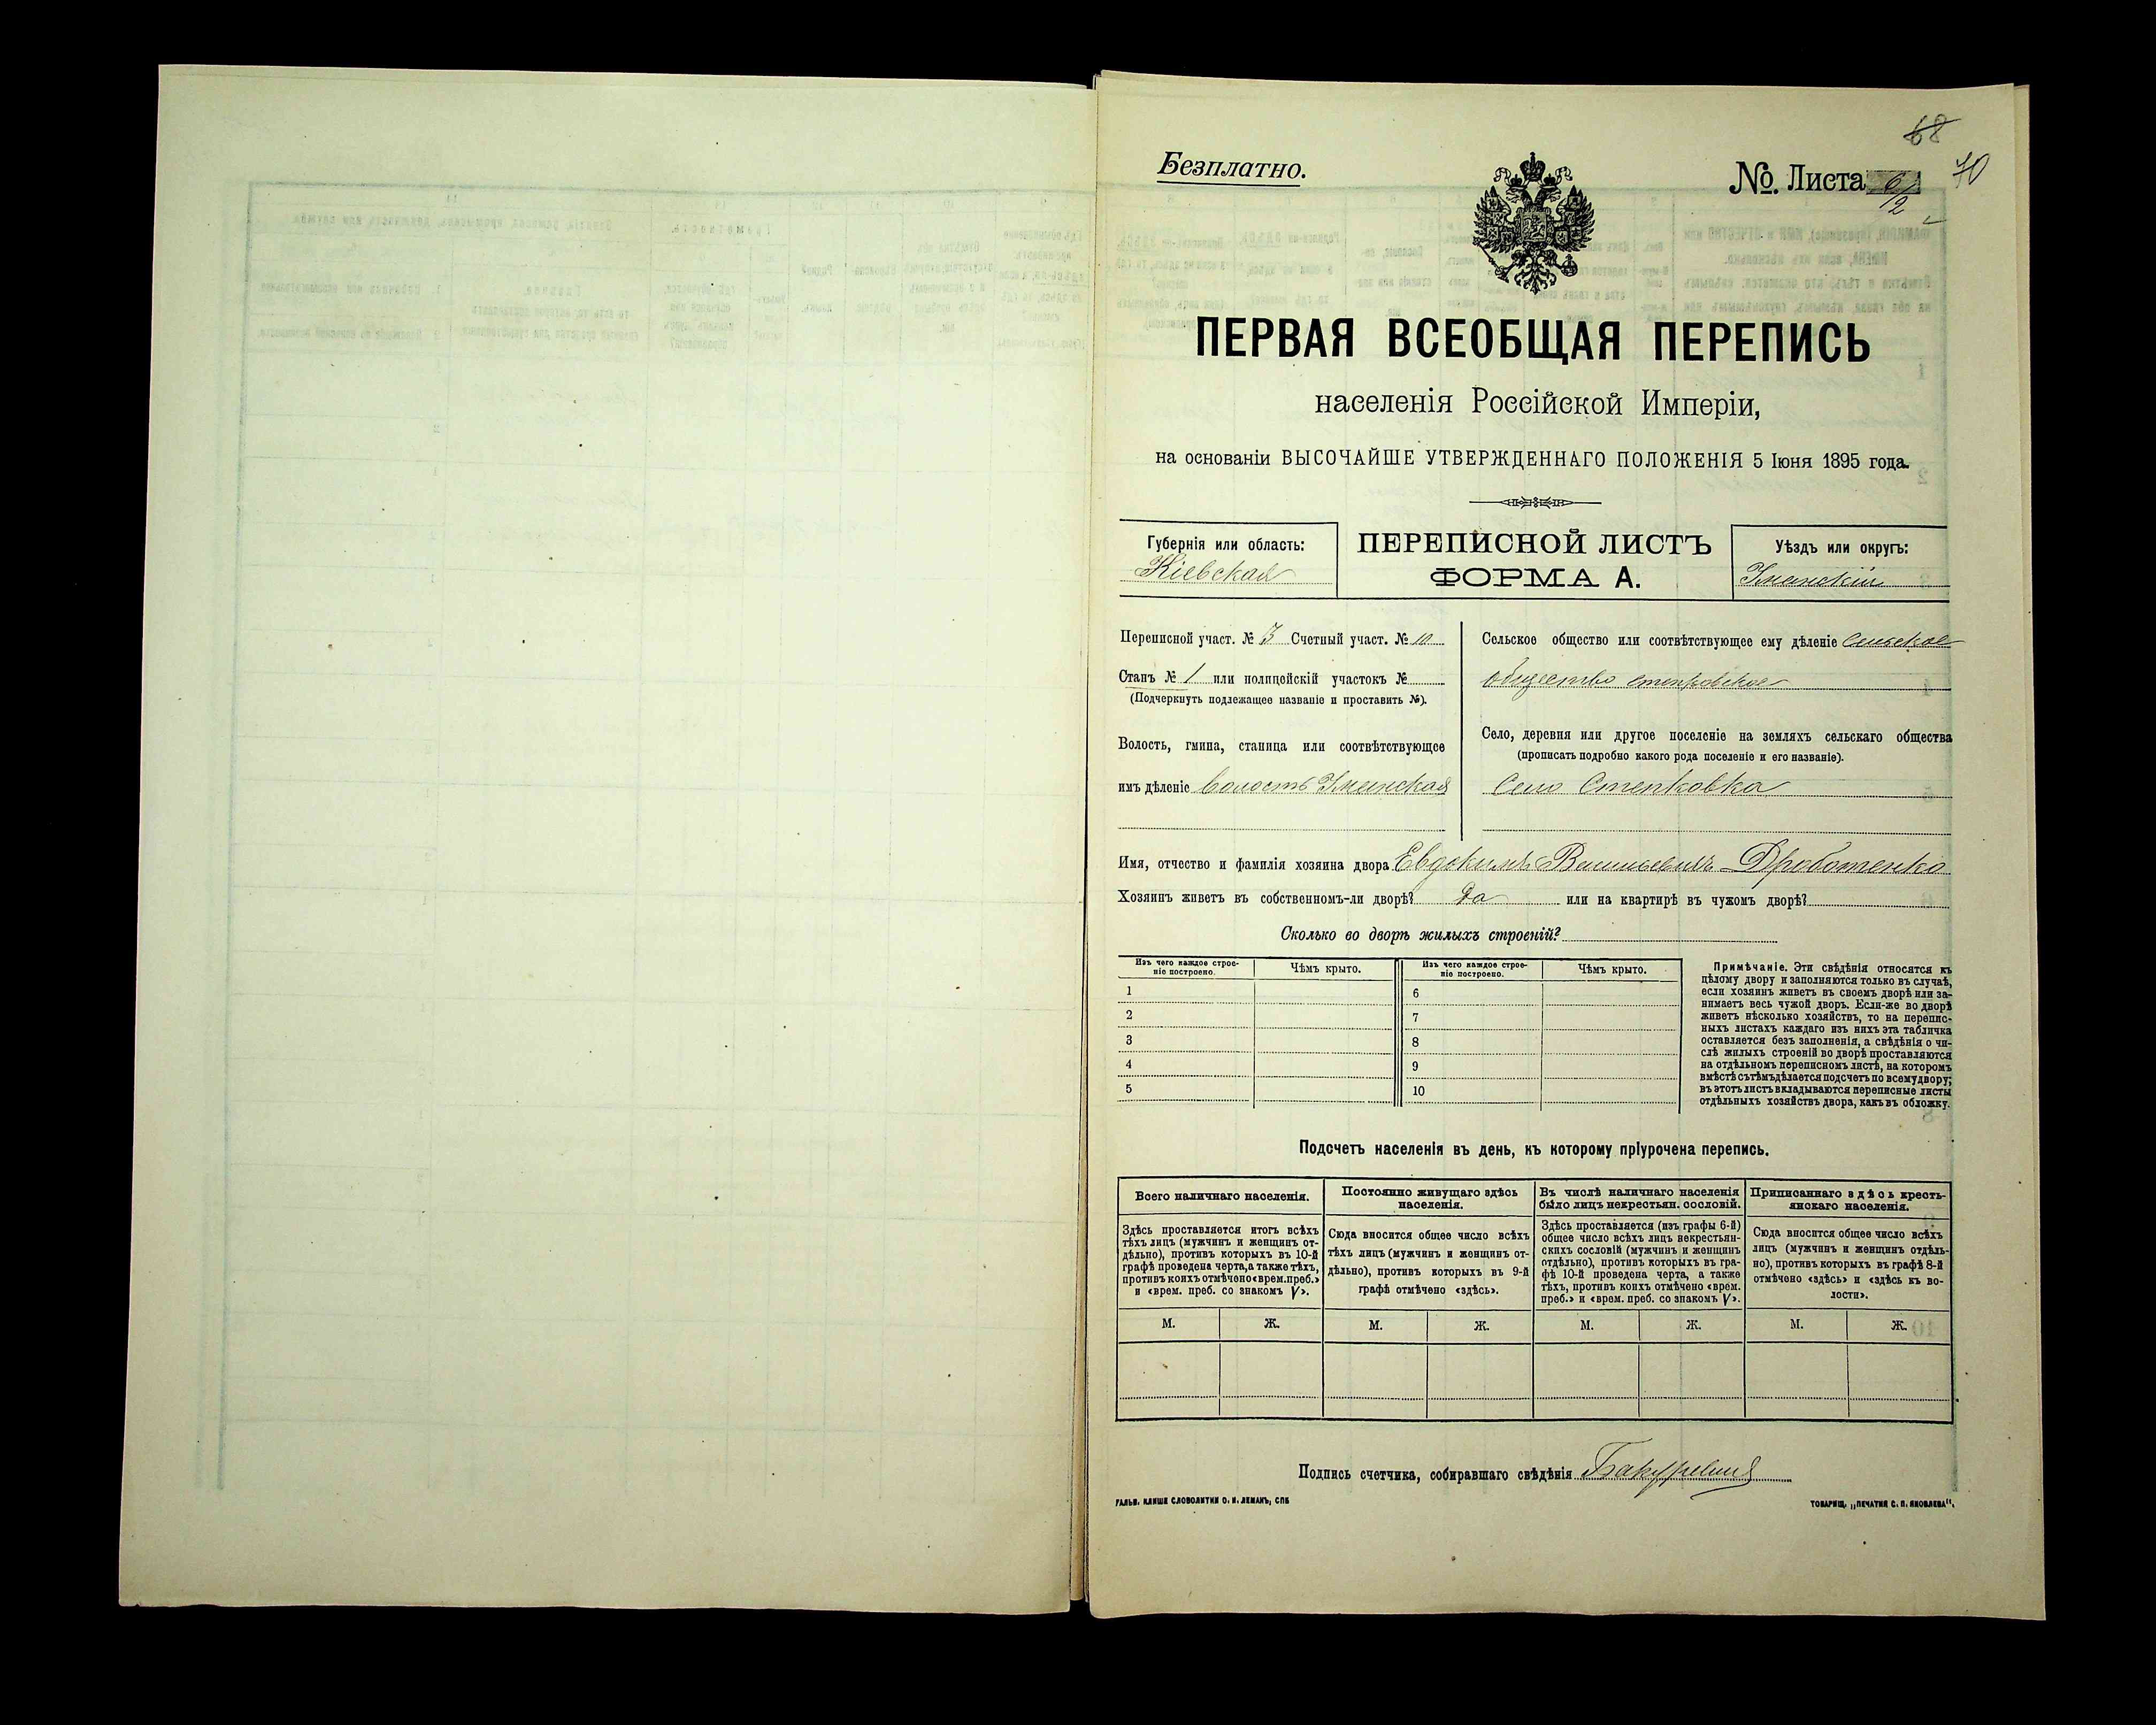 68
70
Безплатно.
№. Листа 6/2
ПЕРВАЯ ВСЕОБЩАЯ ПЕРЕПИСЬ
населенія Россійской Имперіи,
на основаніи ВЫСОЧАЙШЕ УТВЕРЖДЕННАГО ПОЛОЖЕНІЯ 5 Іюня 1895 года.
Губернія или область:
Кіевская
ПЕРЕПИСНОЙ ЛИСТЪ
ФОРМА А.
Уѣздъ или округъ:
Уманскій
Переписной участ. № 3 Счетный участ. № 10
Станъ № 1 или полицейскій участокъ №
(Подчеркнуть подлежащее названіе и проставить №).
Волость, гмина, станица или соотвѣтствующее
имъ дѣленіе волость Уманская
Сельское общество или соотвѣтствующее ему дѣленіе сельское
общество степковское
Село, деревня или другое поселеніе на земляхъ сельскаго общества
(прописать подробно какого рода поселеніе и его названіе).
Село Степковка
Имя, отчество и фамилія хозяина двора Евдокимъ Васильевичъ Дроботенко
Хозяинъ живетъ въ собственномъ-ли дворѣ? Да или на квартирѣ въ чужомъ дворѣ?
Сколько во дворѣ жилыхъ строеній?
Изъ чего каждое строе-
ніе построено.
Чѣмъ крыто.
1
2
3
4
5
Изъ чего каждое строе-
ніе построено.
Чѣмъ крыто.
6
7
8
9
10
Примѣчаніе. Эти свѣдѣнія относятся къ
цѣлому двору и заполняются только въ случаѣ,
если хозяинъ живетъ въ своемъ дворѣ или за-
нимаетъ весь чужой дворъ. Если-же во дворѣ
живетъ нѣсколько хозяйствъ, то на перепис-
ныхъ листахъ каждаго изъ нихъ эта табличка
оставляется безъ заполненія, а свѣдѣнія о чи-
слѣ жилыхъ строеній во дворѣ проставляются
на отдѣльномъ переписномъ листѣ, на которомъ
вмѣстѣ съ тѣмъ дѣлается подсчетъ по всему двору;
въ этотъ листъ вкладываются переписные листы
отдѣльныхъ хозяйствъ двора, какъ въ обложку.
Подсчетъ населенія въ день, къ которому пріурочена перепись.
Всего наличнаго населенія.
Здѣсь проставляется итогъ всѣхъ
тѣхъ лицъ (мужчинъ и женщинъ от-
дѣльно), противъ которыхъ въ 10-й
графѣ проведена черта, а также тѣхъ,
противъ коихъ отмѣчено «врем. преб.»
и «врем. преб. со знакомъ V».
М. Ж.
Постоянно живущаго здѣсь
населенія.
Сюда вносится общее число всѣхъ
тѣхъ лицъ (мужчинъ и женщинъ от-
дѣльно), противъ которыхъ въ 9-й
графѣ отмѣчено «здѣсь».
М. Ж.
Въ числѣ наличнаго населенія
было лицъ некрестьян. сословій.
Здѣсь проставляется (изъ графы 6-й)
общее число всѣхъ лицъ некрестьян-
скихъ сословій (мужчинъ и женщинъ
отдѣльно), противъ которыхъ въ гра-
фѣ 10-й проведена черта, а также
тѣхъ, противъ коихъ отмѣчено «врем.
преб.» и «врем. преб. со знакомъ V».
М. Ж.
Приписаннаго здѣсь кресть-
янскаго населенія.
Сюда вносится общее число всѣхъ
лицъ (мужчинъ и женщинъ отдѣль-
но), противъ которыхъ въ графѣ 8-й
отмѣчено «здѣсь» и «здѣсь къ во-
лости».
М. Ж.
Подпись счетчика, собиравшаго свѣдѣнія
ГАЛЬВ. КЛИШЕ СЛОВОЛИТНИ О. И. ЛЕМАНЪ, СПБ
ТОВАРИЩ. „ПЕЧАТНЯ С. П. ЯКОВЛЕВА".